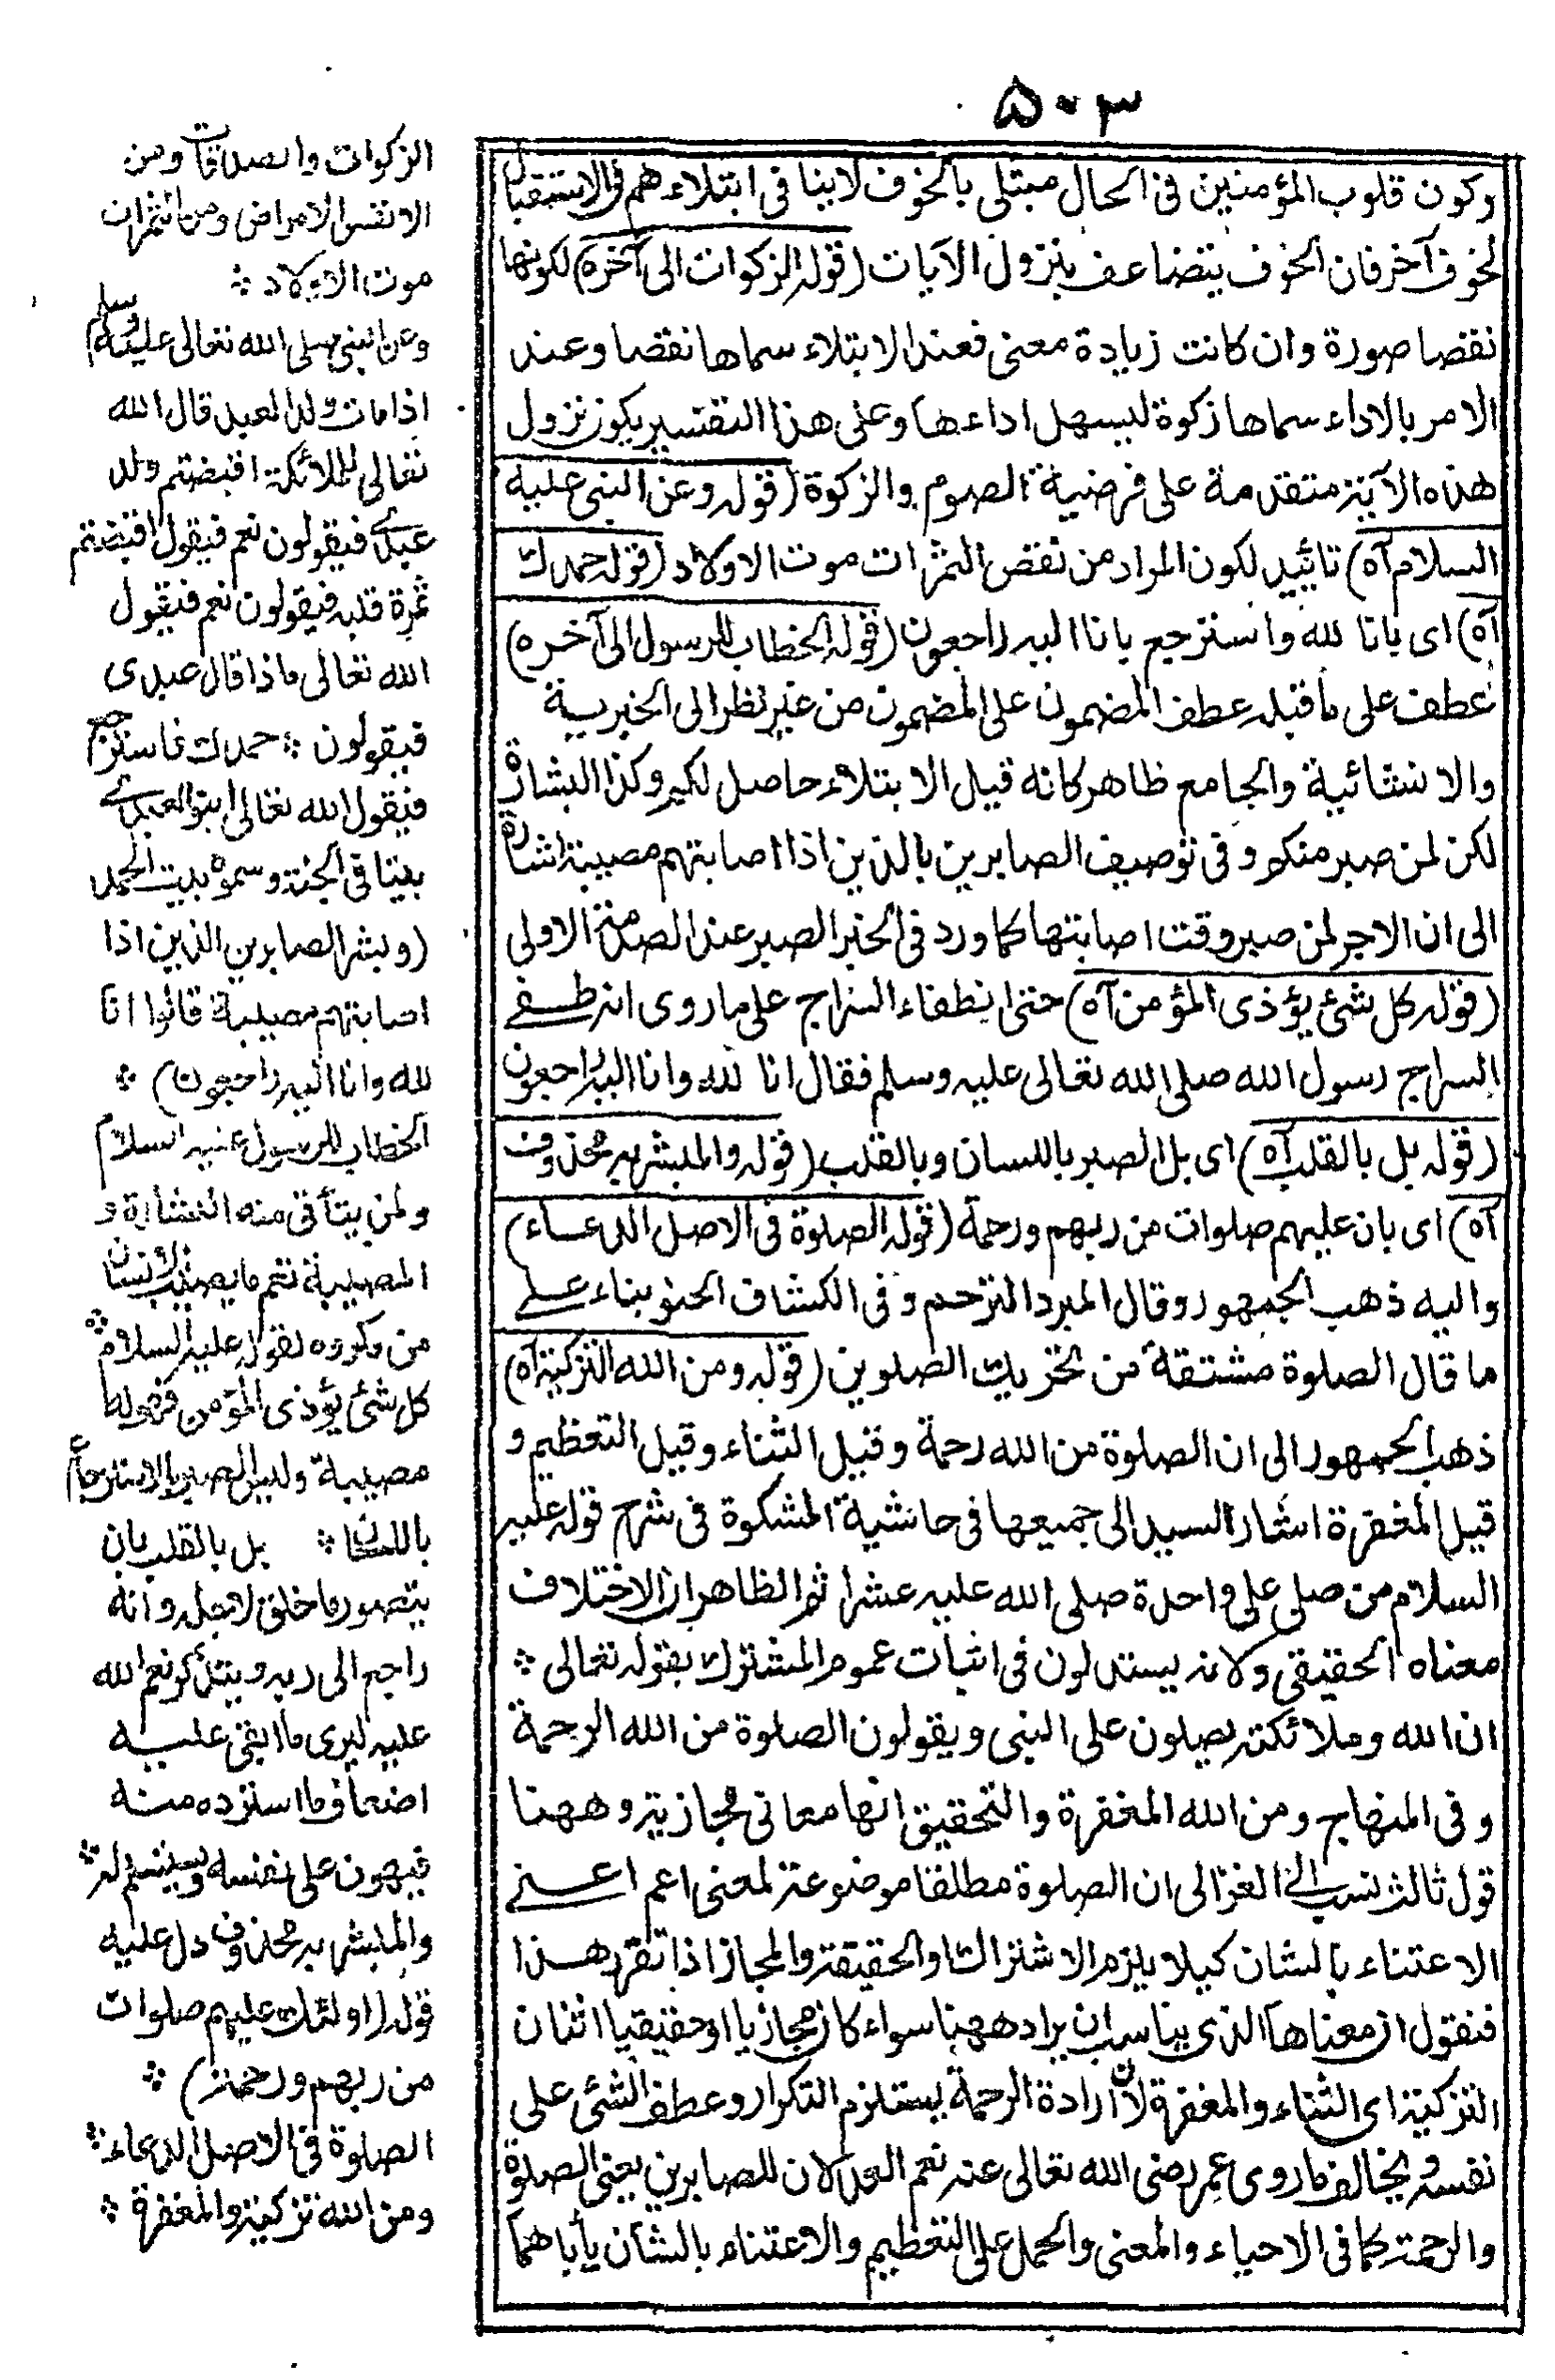 ۵۰۳
وكون قلوب المؤمنين فى الحال مبتلى بالخوف لاينا فى ابتلاءهم فى الاستقبال
لخوف آخر فان الخوف يتضاعف بنزول الآيات (قوله الزكوات الى آخره) لكونها
نقصا صورة وان كانت زيادة معنى فعند الابتلاء سماها نقصا وعند
الامر بالاداء سماها زكوة ليسهل اداءها وعلى هذا التفسير يكون نزول
هذه الآية متقدمة على فرضية الصوم والزكوة (قوله وعن النبى عليه
السلام آه) تائيد لكون المراد من نقص الثمرات موت الاولاد (قوله حمدك
آه) اى بانا لله واسترجع بانا اليه راجعون (قوله الخطاب للرسول الى آخره)
عطف على ما قبله عطف المضمون على المضمون من غير نظر الى الخبرية
والانشائية والجامع ظاهر كانه قيل الابتلاء حاصل لكم وكذا البشارة
لكن لمن صبر منكم وفى توصيف الصابرين بالذين اذا اصابتهم مصيبة اشارة
الى ان الاجر لمن صبر وقت اصابتها كما ورد فى الخبر الصبر عند الصدمة الاولى
(قوله كل شئ يؤذى المؤمن آه) حتى انطفاء السراج على ما روى انه طفى
السراج رسول الله صلى الله تعالى عليه وسلم فقال انا لله وانا اليه راجعون
(قوله بل بالقلب آه) اى بل الصبر باللسان وبالقلب (قوله والمبشر به محذوف
آه) اى بان عليهم صلوات من ربهم ورحمة (قوله الصلوة فى الاصل الدعاء)
واليه ذهب الجمهور وقال المبرد الترحم وفى الكشاف الحنو بناء على
ما قال الصلوة مشتقة من تحريك الصلوين (قوله ومن الله التزكية آه)
ذهب الجمهور الى ان الصلوة من الله رحمة وقيل الثناء وقيل التعظيم و
قيل المغفرة اشار السيد الى جميعها فى حاشية المشكوة فى شرح قوله عليه
السلام من صلى على واحدة صلى الله عليه عشرا ثم الظاهر ان الاختلاف
معناه الحقيقى ولانه يستدلون فى اثبات عموم المشترك بقوله تعالى ❊
ان الله وملائكته يصلون على النبى ويقولون الصلوة من الله الرحمة
وفى المنهاج ومن الله المغفرة والتحقيق انها معانى مجازية وههنا
قول ثالث نسب الى الغزالى ان الصلوة مطلقا موضوعة لمعنى اعم اعنى
الاعتناء بالشان كيلا يلزم الاشتراك او الحقيقة والمجاز اذا تقرر هذا
فنقول ان معناها الذى يناسب ان يراد ههنا سواء كان مجازيا او حقيقيا اثنان
التزكية اى الثناء والمغفرة لان ارادة الرحمة يستلزم التكرار وعطف الشئ على
نفسه ويخالف ما روى عمر رضى الله تعالى عنه نعم العدلان للصابرين يعنى الصلوة
والرحمة كما فى الاحياء والمعنى والحمل على التعظيم والاعتناء بالشان يأباهما
الزكوات والصدقات ومن
الانفس الامراض ومن الثمرات
موت الاولاد ❊
وعن النبى صلى الله تعالى عليه وسلم
اذا مات ولد العبد قال الله
تعالى للملائكة اقبضتم ولد
عبدى فيقولون نعم فيقول اقبضتم
ثمرة قلبه فيقولون نعم فيقول
الله تعالى ماذا قال عبدى
فيقولون ❊ حمدك فاسترجع
فيقول الله تعالى ابنوا لعبدى
بيتا فى الجنة وسموه بيت الحمد
(وبشر الصابرين الذين اذا
اصابتهم مصيبة قالوا انا
لله وانا اليه راجعون) ❊
الخطاب للرسول عليه السلام
ولمن يتأتى منه البشارة و
المصيبة تعم ما يصيب الانسان
من مكروه لقوله عليه السلام ❊
كل شئ يؤذى المؤمن فهو له
مصيبة وليس الصبر بالاسترجاع
باللسان ❊ بل بالقلب بان
يتصور ما خلق لاجله وانه
راجع الى ربه ويتذكر نعم الله
عليه ليرى ما ابقى عليه
اضعاف ما استرده منه
فيهون على نفسه ويستسلم له ❊
والمبشر به محذوف دل عليه
قوله (اولئك عليهم صلوات
من ربهم ورحمة) ❊
الصلوة فى الاصل الدعاء ❊
ومن الله تزكية والمغفرة ❊